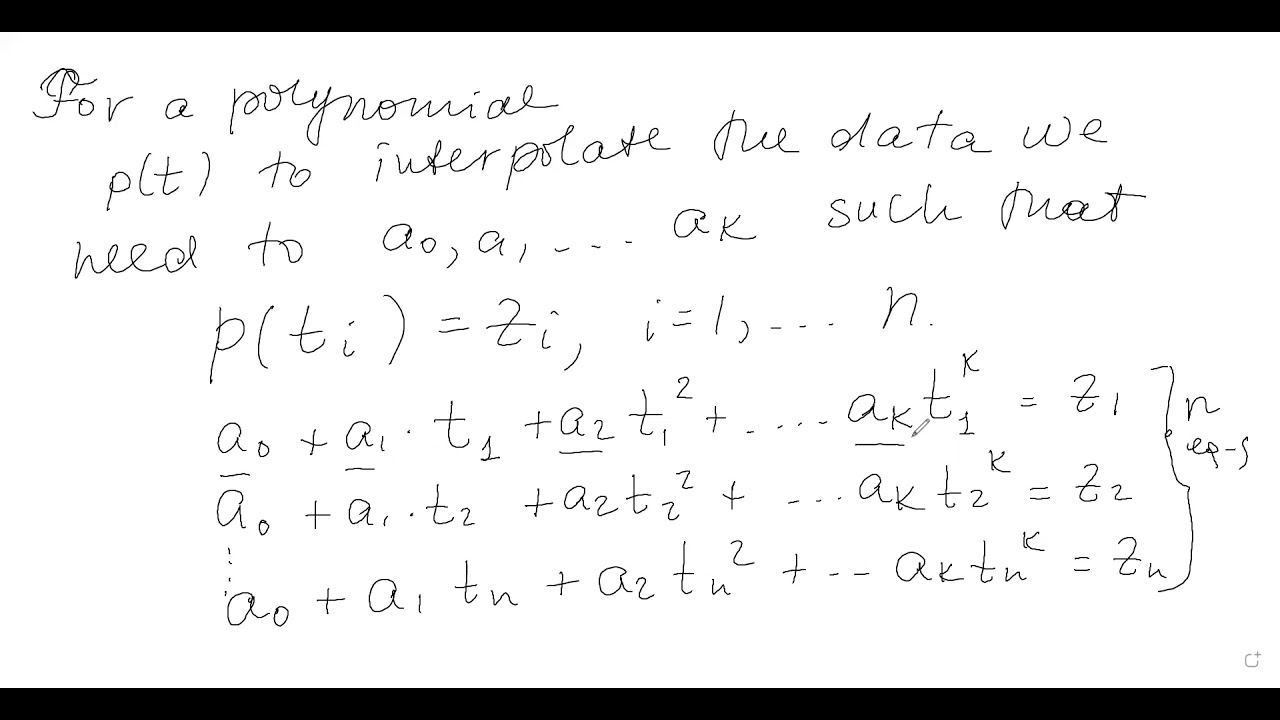 For a polynomial
p(t) to interpolate the data we
need to a₀, a, ... aₖ such that
p(tᵢ) = zᵢ, i=1, ... n.
a₀ + a₁ · t₁ + a₂ t₁² + .... aₖ t₁ᵏ = z₁
a₀ + a₁ · t₂ + a₂ t₂² + ... aₖ t₂ᵏ = z₂
⋮
a₀ + a₁ tₙ + a₂ tₙ² + ... aₖ tₙᵏ = zₙ
} n
eq-s